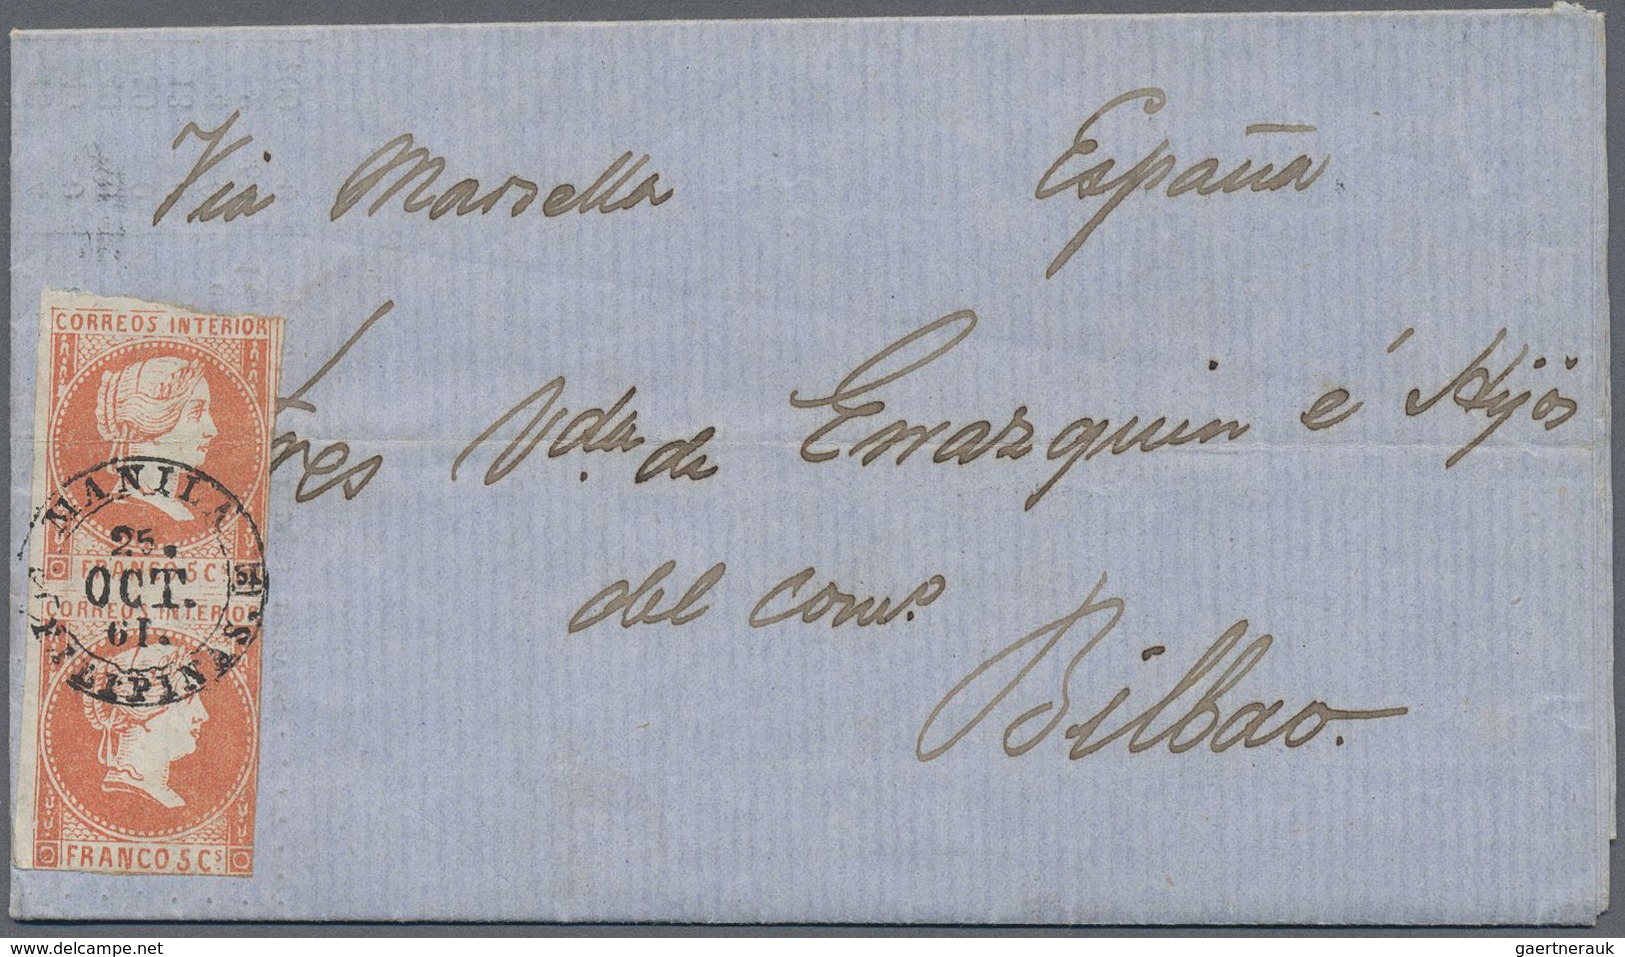 Via Marsella España
CORREOS INTERIOR
Sres Vda. de Errazquin é Hijos
MANILA
25.
FRANCO 5 Cs
OCT.
CORREOS INTERIOR
61.
YSLAS FILIPINAS.
del como.
Bilbao.
FRANCO 5 Cs.
www.delcampe.net
gaertnerauk